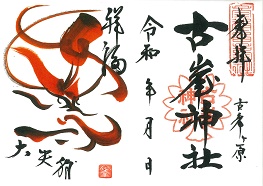 奉拝
古峯ヶ原
古峯神社
令和 年 月 日
大天狗